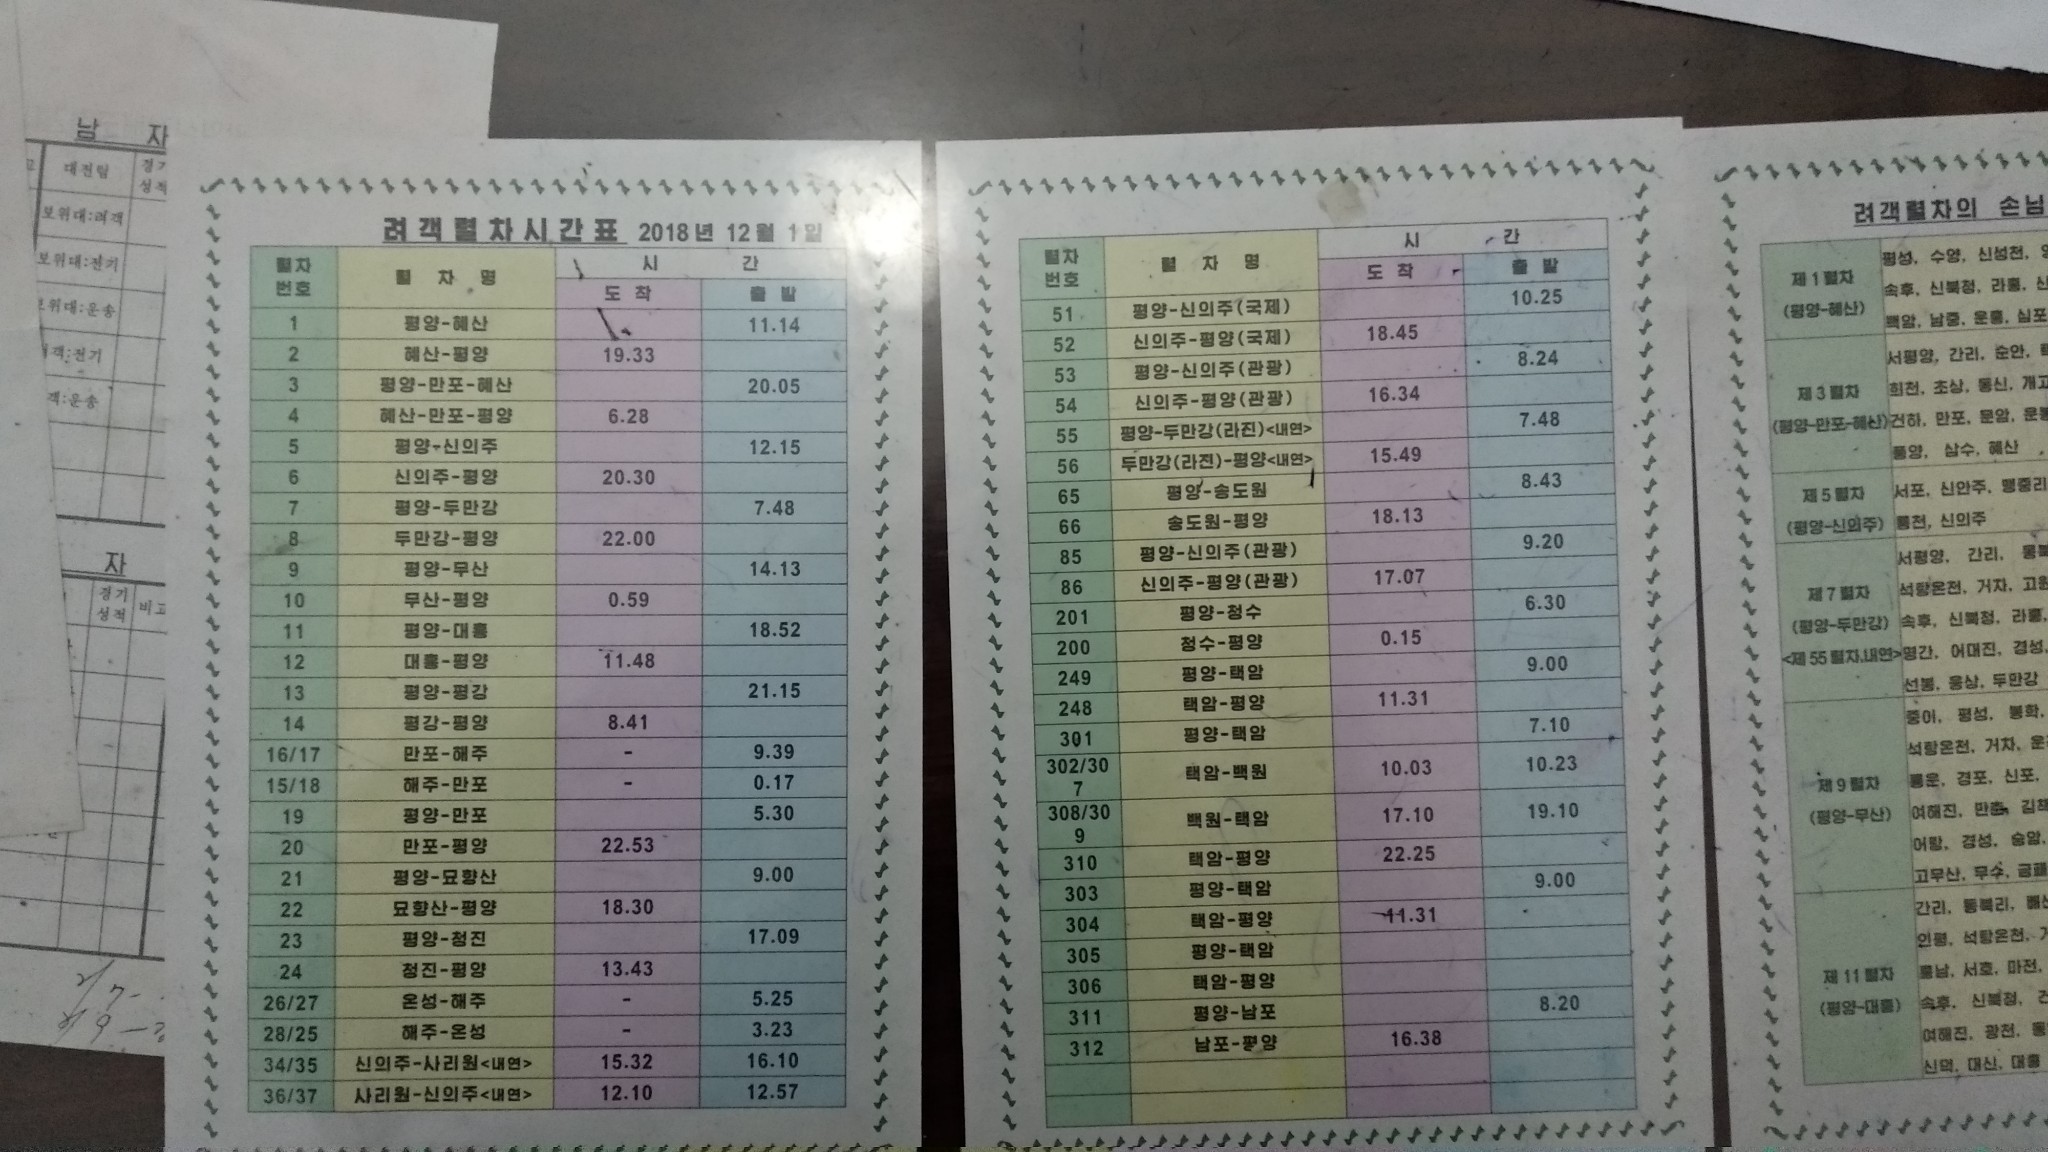 남 자
대전팀 경기
성적
보위대:려객
보위대:전기
보위대:운송
려객:전기
려객:운송
자
경기
성적 비고
려객렬차시간표 2018년 12월 1일
렬차
번호 렬 차 명 시 간
도 착 출 발
1 평양-혜산 11.14
2 혜산-평양 19.33
3 평양-만포-혜산 20.05
4 혜산-만포-평양 6.28
5 평양-신의주 12.15
6 신의주-평양 20.30
7 평양-두만강 7.48
8 두만강-평양 22.00
9 평양-무산 14.13
10 무산-평양 0.59
11 평양-대흥 18.52
12 대흥-평양 11.48
13 평양-평강 21.15
14 평강-평양 8.41
16/17 만포-해주 - 9.39
15/18 해주-만포 - 0.17
19 평양-만포 5.30
20 만포-평양 22.53
21 평양-묘향산 9.00
22 묘향산-평양 18.30
23 평양-청진 17.09
24 청진-평양 13.43
26/27 온성-해주 - 5.25
28/25 해주-온성 - 3.23
34/35 신의주-사리원<내연> 15.32 16.10
36/37 사리원-신의주<내연> 12.10 12.57
렬차
번호 렬 차 명 시 간
도 착 출 발
51 평양-신의주(국제) 10.25
52 신의주-평양(국제) 18.45
53 평양-신의주(관광) 8.24
54 신의주-평양(관광) 16.34
55 평양-두만강(라진)<내연> 7.48
56 두만강(라진)-평양<내연> 15.49
65 평양-송도원 8.43
66 송도원-평양 18.13
85 평양-신의주(관광) 9.20
86 신의주-평양(관광) 17.07
201 평양-청수 6.30
200 청수-평양 0.15
249 평양-택암 9.00
248 택암-평양 11.31
301 평양-택암 7.10
302/30
7 택암-백원 10.03 10.23
308/30
9 백원-택암 17.10 19.10
310 택암-평양 22.25
303 평양-택암 9.00
304 택암-평양 11.31
305 평양-택암
306 택암-평양
311 평양-남포 8.20
312 남포-평양 16.38
려객렬차의 손님
제1렬차
(평양-혜산)
평성, 수양, 신성천,
속후, 신북청, 라흥,
백암, 남중, 운흥, 심포
제3렬차
(평양-만포-혜산)
서평양, 간리, 순안,
희천, 초상, 동신, 개고
건하, 만포, 문암, 운봉
통양, 삼수, 혜산
제5렬차
(평양-신의주)
서포, 신안주, 맹중리
룡천, 신의주
제7렬차
(평양-두만강)
<제55렬차,내연>
서평양, 간리, 동북
석탕온천, 거차, 고원
속후, 신북청, 라흥,
명간, 어대진, 경성,
선봉, 웅상, 두만강
제9렬차
(평양-무산)
중이, 평성, 봉학,
석탕온천, 거차,
룡운, 경포, 신포,
여해진, 만춘, 김책
어랑, 경성, 승암,
고무산, 무수,
제11렬차
(평양-대흥)
간리, 동북리,
인평, 석탕온천,
룡남, 서호, 마전,
속후, 신북청,
여해진, 광천,
신덕, 대신, 대흥